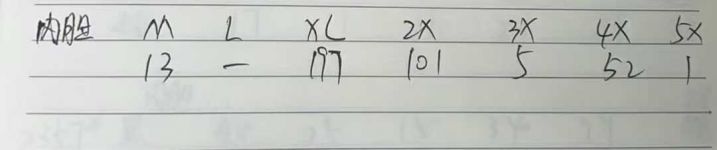 内胆 M L XL 2X 3X 4X 5X
13 — 197 101 5 52 1